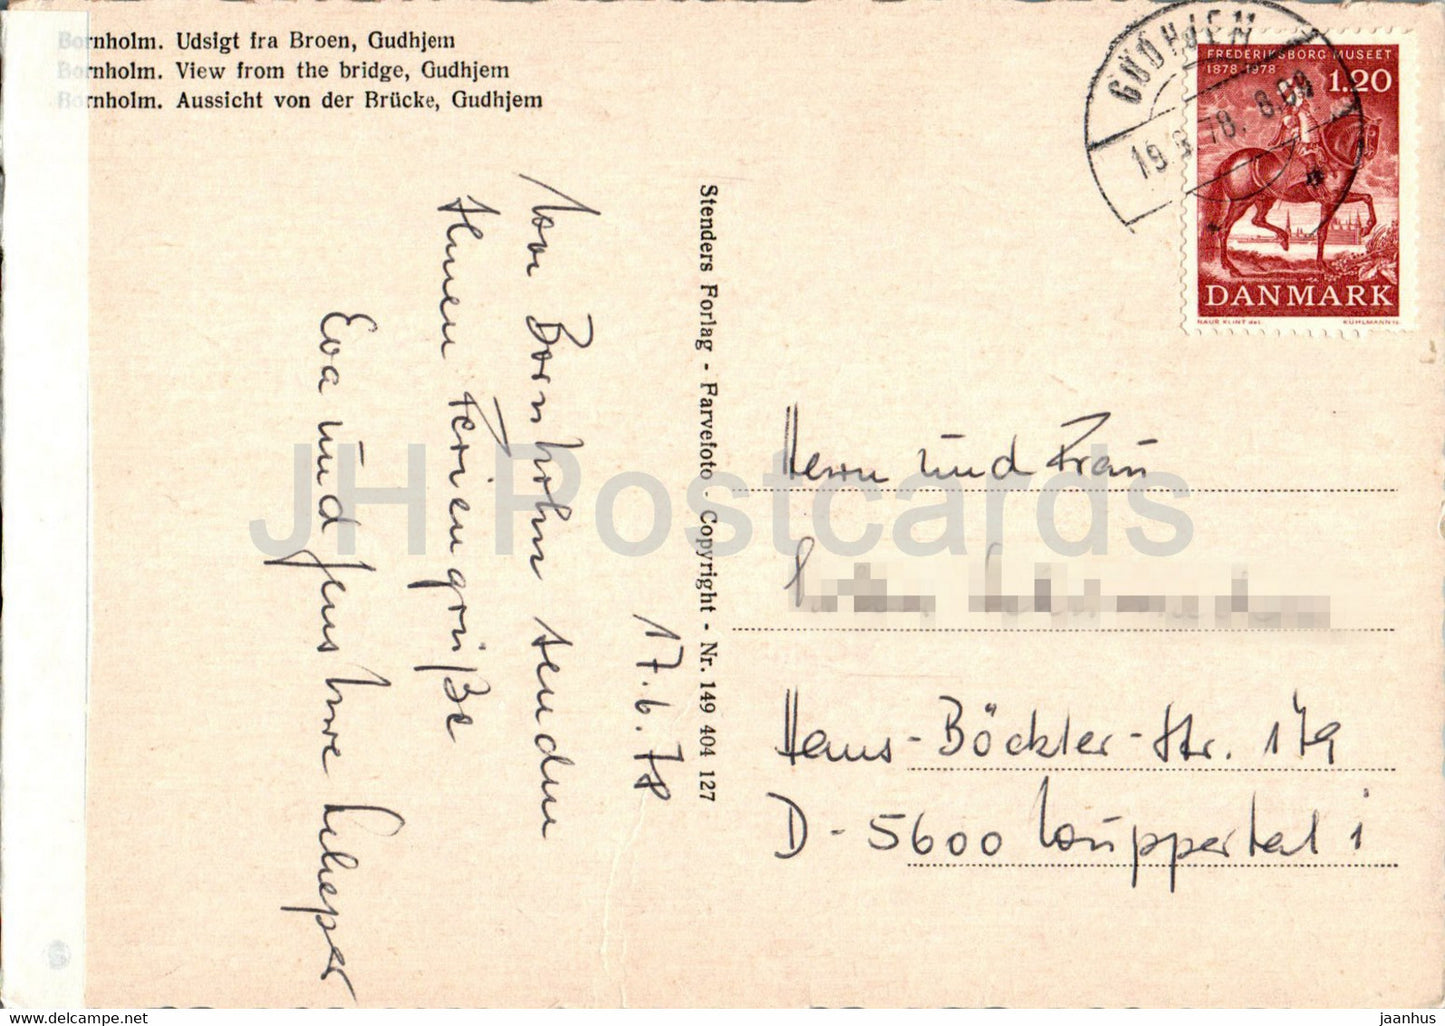 Bornholm. Udsigt fra Broen, Gudhjem
Bornholm. View from the bridge, Gudhjem
Bornholm. Aussicht von der Brücke, Gudhjem
GUDHJEM
FREDERIKSBORG MUSEET
1878-1978
1.20
DANMARK
KÜHLMANN
17.6.78
Von Bornholm senden
Ihnen Feriengrüße
Eva und Jens Uwe
Stenders Forlag - Farvefoto - Copyright - Nr. 149 404 127
Herrn und Frau
Hans-Böckler-Str. 179
D-5600 Wuppertal 1
JH Postcards
www.delcampe.net
jaanhus